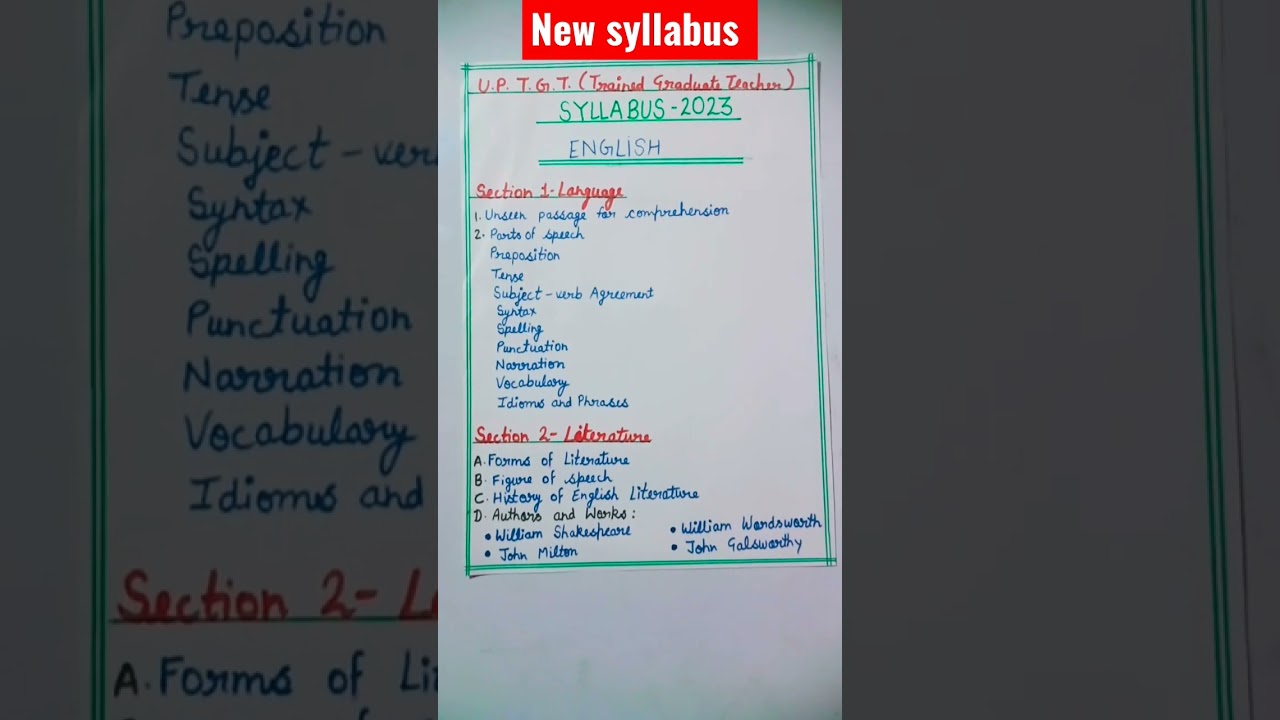 New syllabus
U.P. T.G.T. (Trained Graduate Teacher)
SYLLABUS-2023
ENGLISH
Section 1-Language
1. Unseen passage for comprehension
2. Parts of speech
Preposition
Tense
Subject-verb Agreement
Syntax
Spelling
Punctuation
Narration
Vocabulary
Idioms and Phrases
Section 2- Literature
A. Forms of Literature
B. Figure of speech
C. History of English Literature
D. Authors and Works:
• William Shakespeare
• John Milton
• William Wordsworth
• John Galsworthy
Preposition
Tense
Subject-ver
Syntax
Spelling
Punctuation
Narration
Vocabulary
Idioms and
Section 2- L
A. Forms of Li